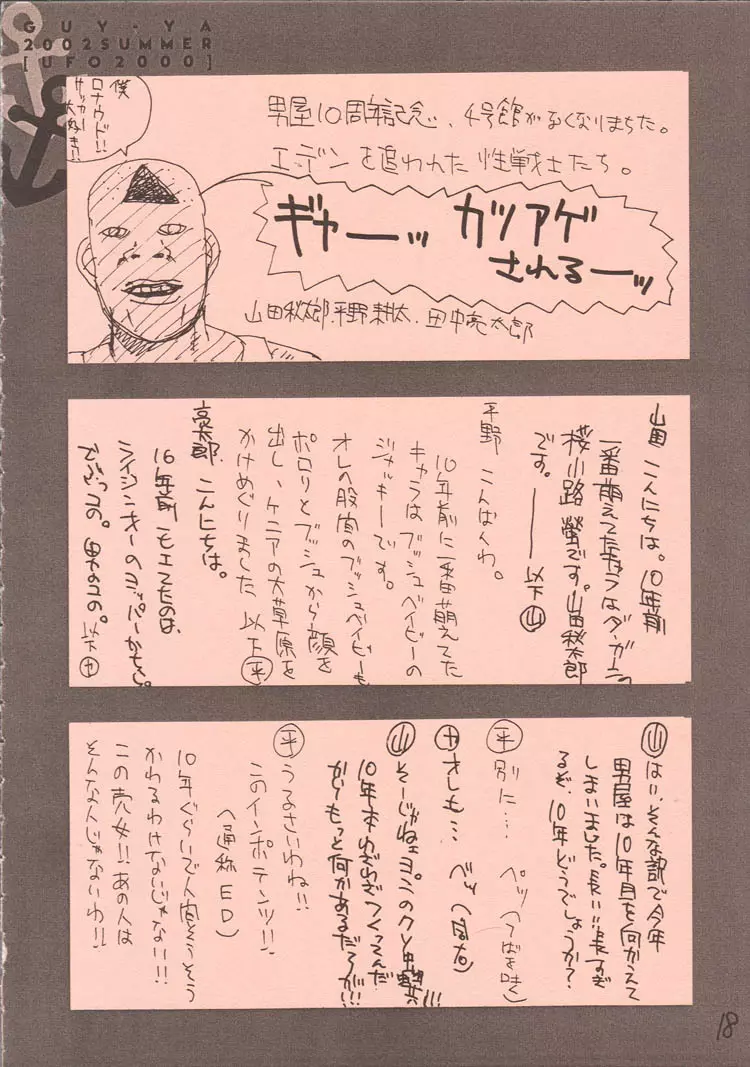 GUY-YA
2002SUMMER
[UFO2000]
僕
ロナウド!!
サッカー
大好き!!
男屋10周年記念、4号館がなくなりまちた。
エデンを追われた性戦士たち。
ギャーーッ カツアゲ
されるーーッ
山田秋太郎.平野耕太.田中亮太郎
山田 こんにちは。10年前
一番萌えてたキャラはダ・ガーンの
桜小路螢です。山田秋太郎
です。――以下㊤山
平野 こんばくわ。
10年前に一番萌えてた
キャラはブッシュベイビーの
ジャッキーです。
オレの股間のブッシュベイビーも
ポロリとブッシュから顔を
出し、ケニアの大草原を
かけめぐりました 以下平
亮太郎. こんにちは。
16年前モエてたのは、
ライジンオーのヨッパーかちと。
でぶっコの。男のコの。以下
山 はい、そんな訳で今年
男屋は10年目を向かえて
しまいました。長い!!長すぎ
るぞ、10年どうでしょうか?
平 別に… ペッ(つばを吐く)
オレも… ペッ
山 そーじゃねェ!このクソ虫共!!!
10年本わざわざつくってんだ
から もっと何かあるだろが!!!
平 うるさいわね!!
このインポテンツ!!
(通称ED)
10年ぐらいで人間そうそう
かわるわけないじゃない!!!
この売女!!あの人は
そんな人じゃないわ!!
18